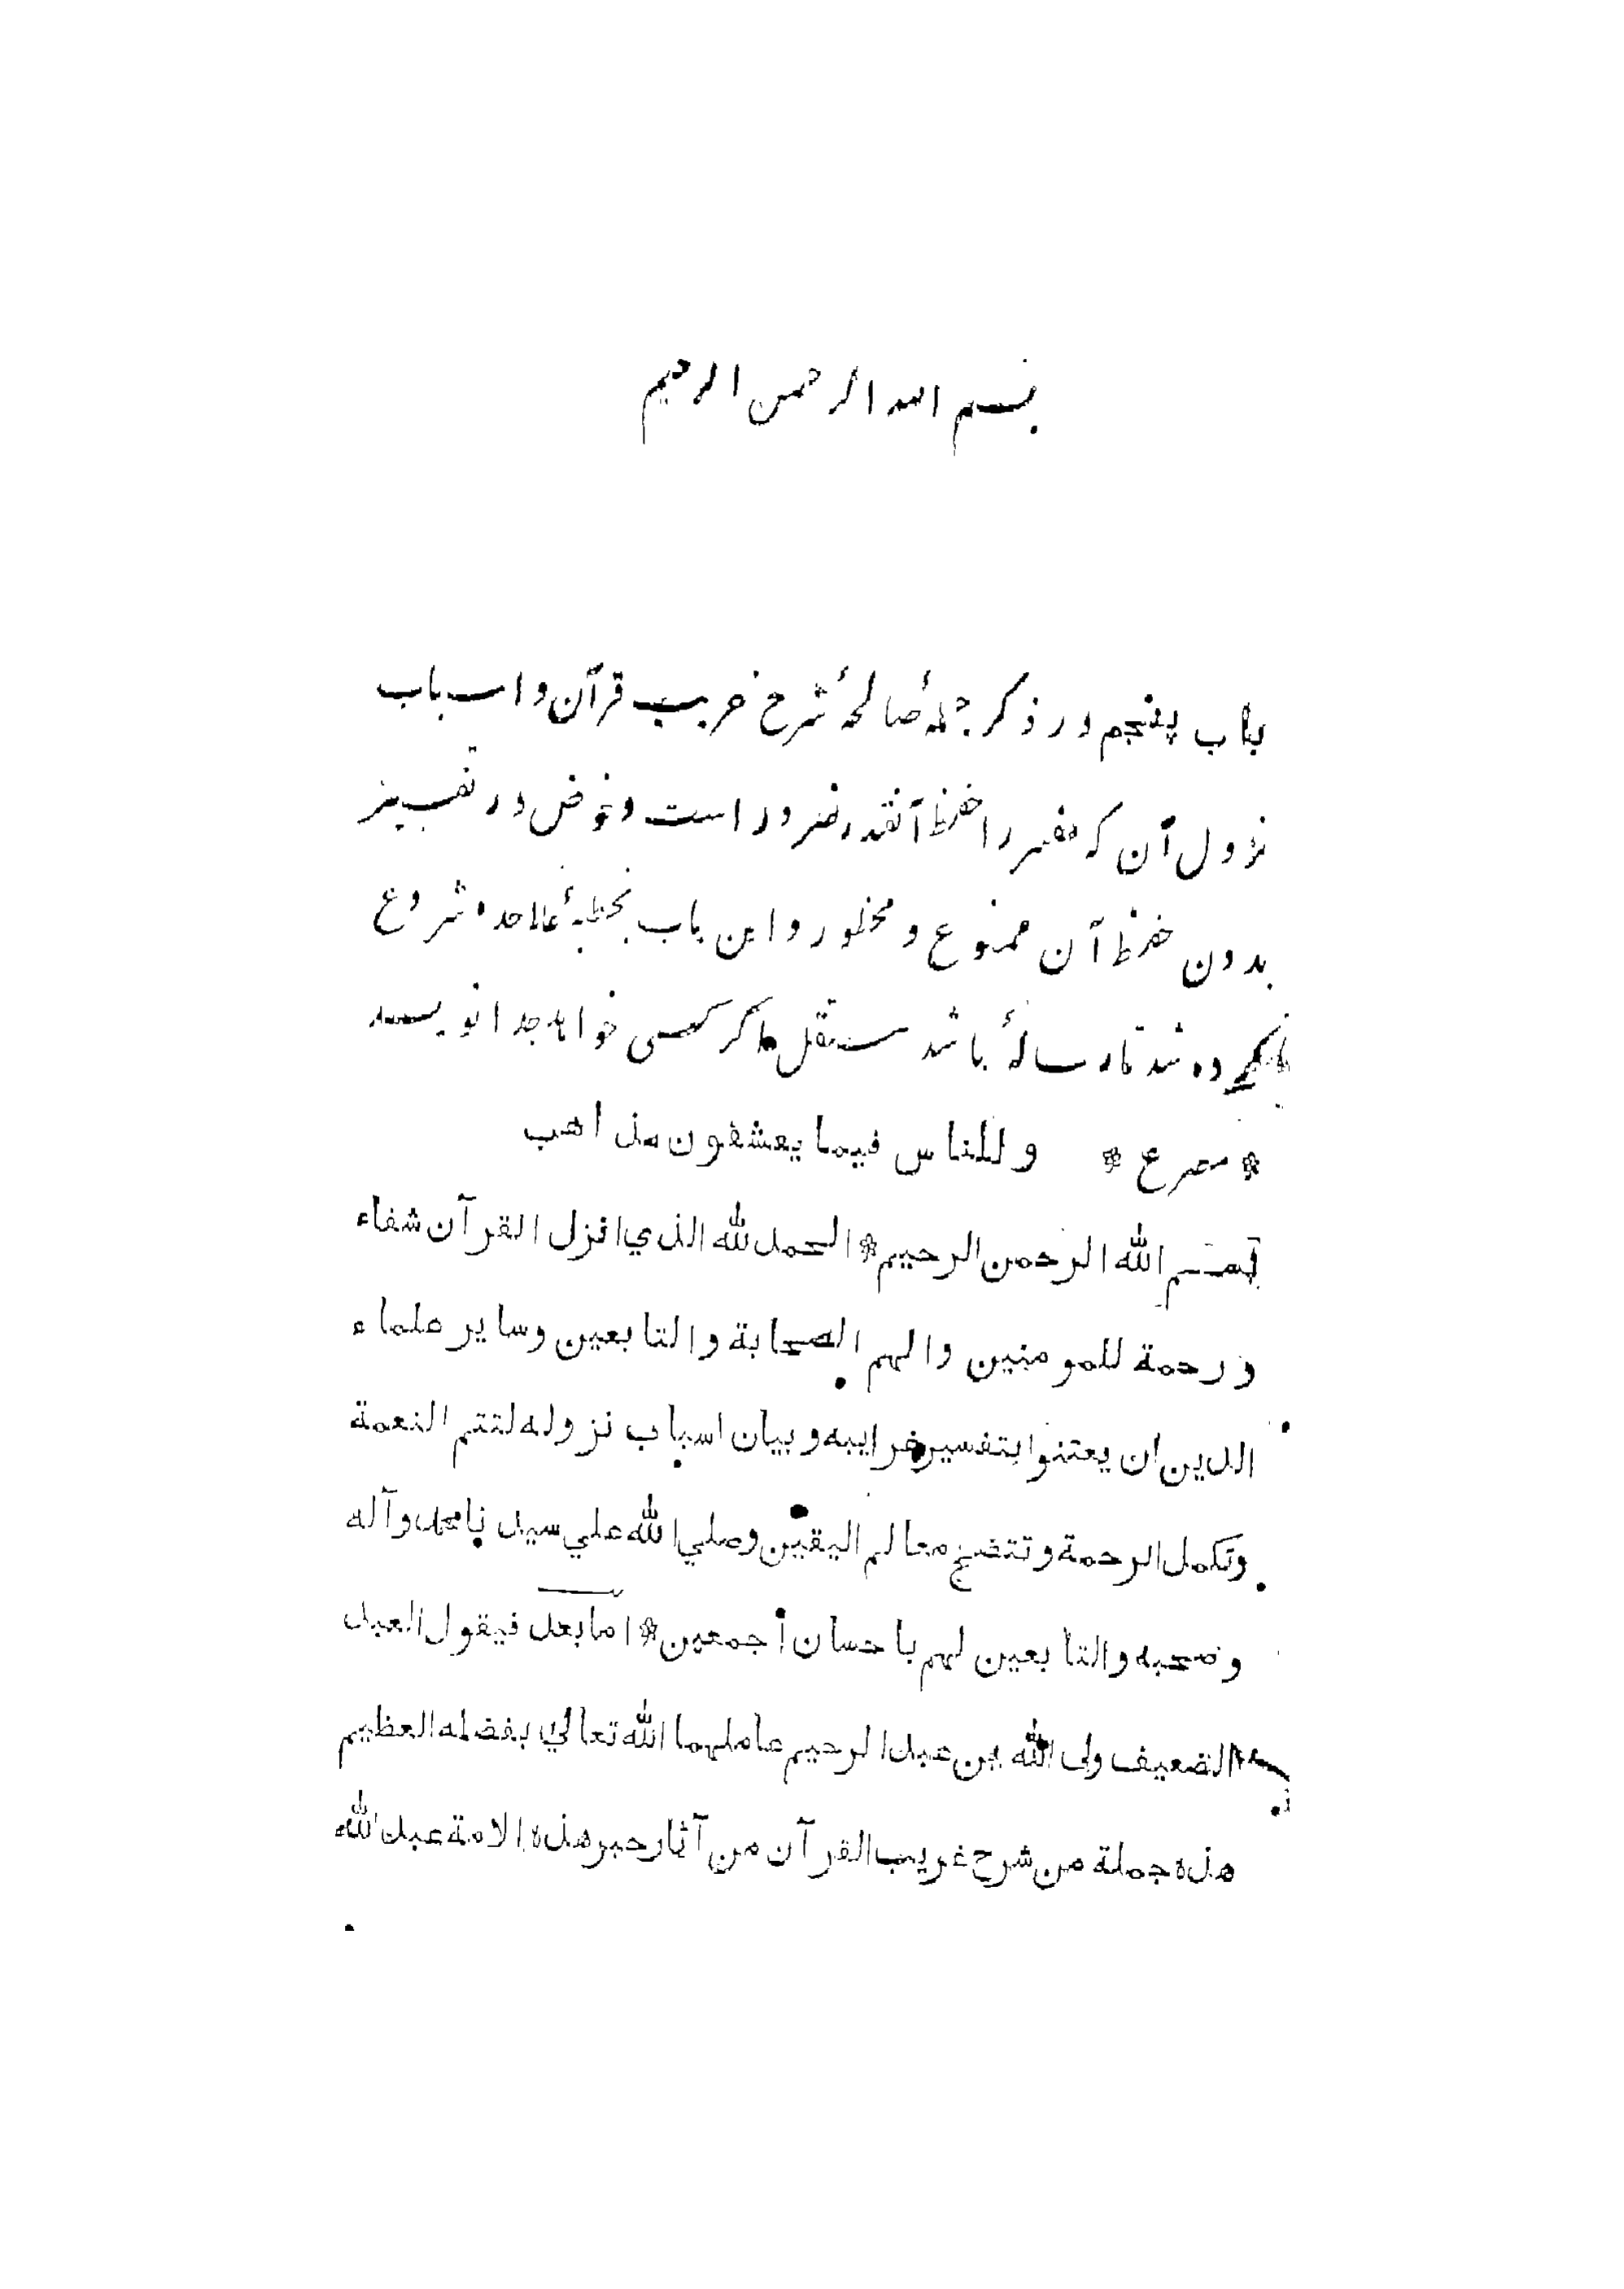 بسم الله الرحمن الرحيم
باب پنجم در ذکر جملهٔ صالحهٔ شرح غریب قرآن و اسباب
نزول آن که مفسر را حفظ آنقدر ضرور است و خوض در تفسیر
بدون حفظ آن ممنوع و محظور و این باب بخطبهٔ علاحده شروع
کرده شد تا رسالهٔ باشد مستقل اگر کسی خواهد جدا نویسد
* مصرع * وللناس فيما يعشقون مذاهب
بسم الله الرحمن الرحيم * الحمد لله الذي انزل القرآن شفاء
ورحمة للمومنين والهم الصحابة والتابعين وساير علماء
الدين ان يعتنوا بتفسير غرايبه وبيان اسباب نزوله لتتم النعمة
وتكمل الرحمة وتتضح معالم اليقين وصلي الله علي سيدنا محمد وآله
وصحبه والتابعين لهم باحسان أجمعين * امّا بعد فيقول العبد
الضعيف ولى الله بن عبد الرحيم عاملهما الله تعالي بفضله العظيم
هذه جملة من شرح غريب القرآن من آثار حبر هذه الامة عبد الله